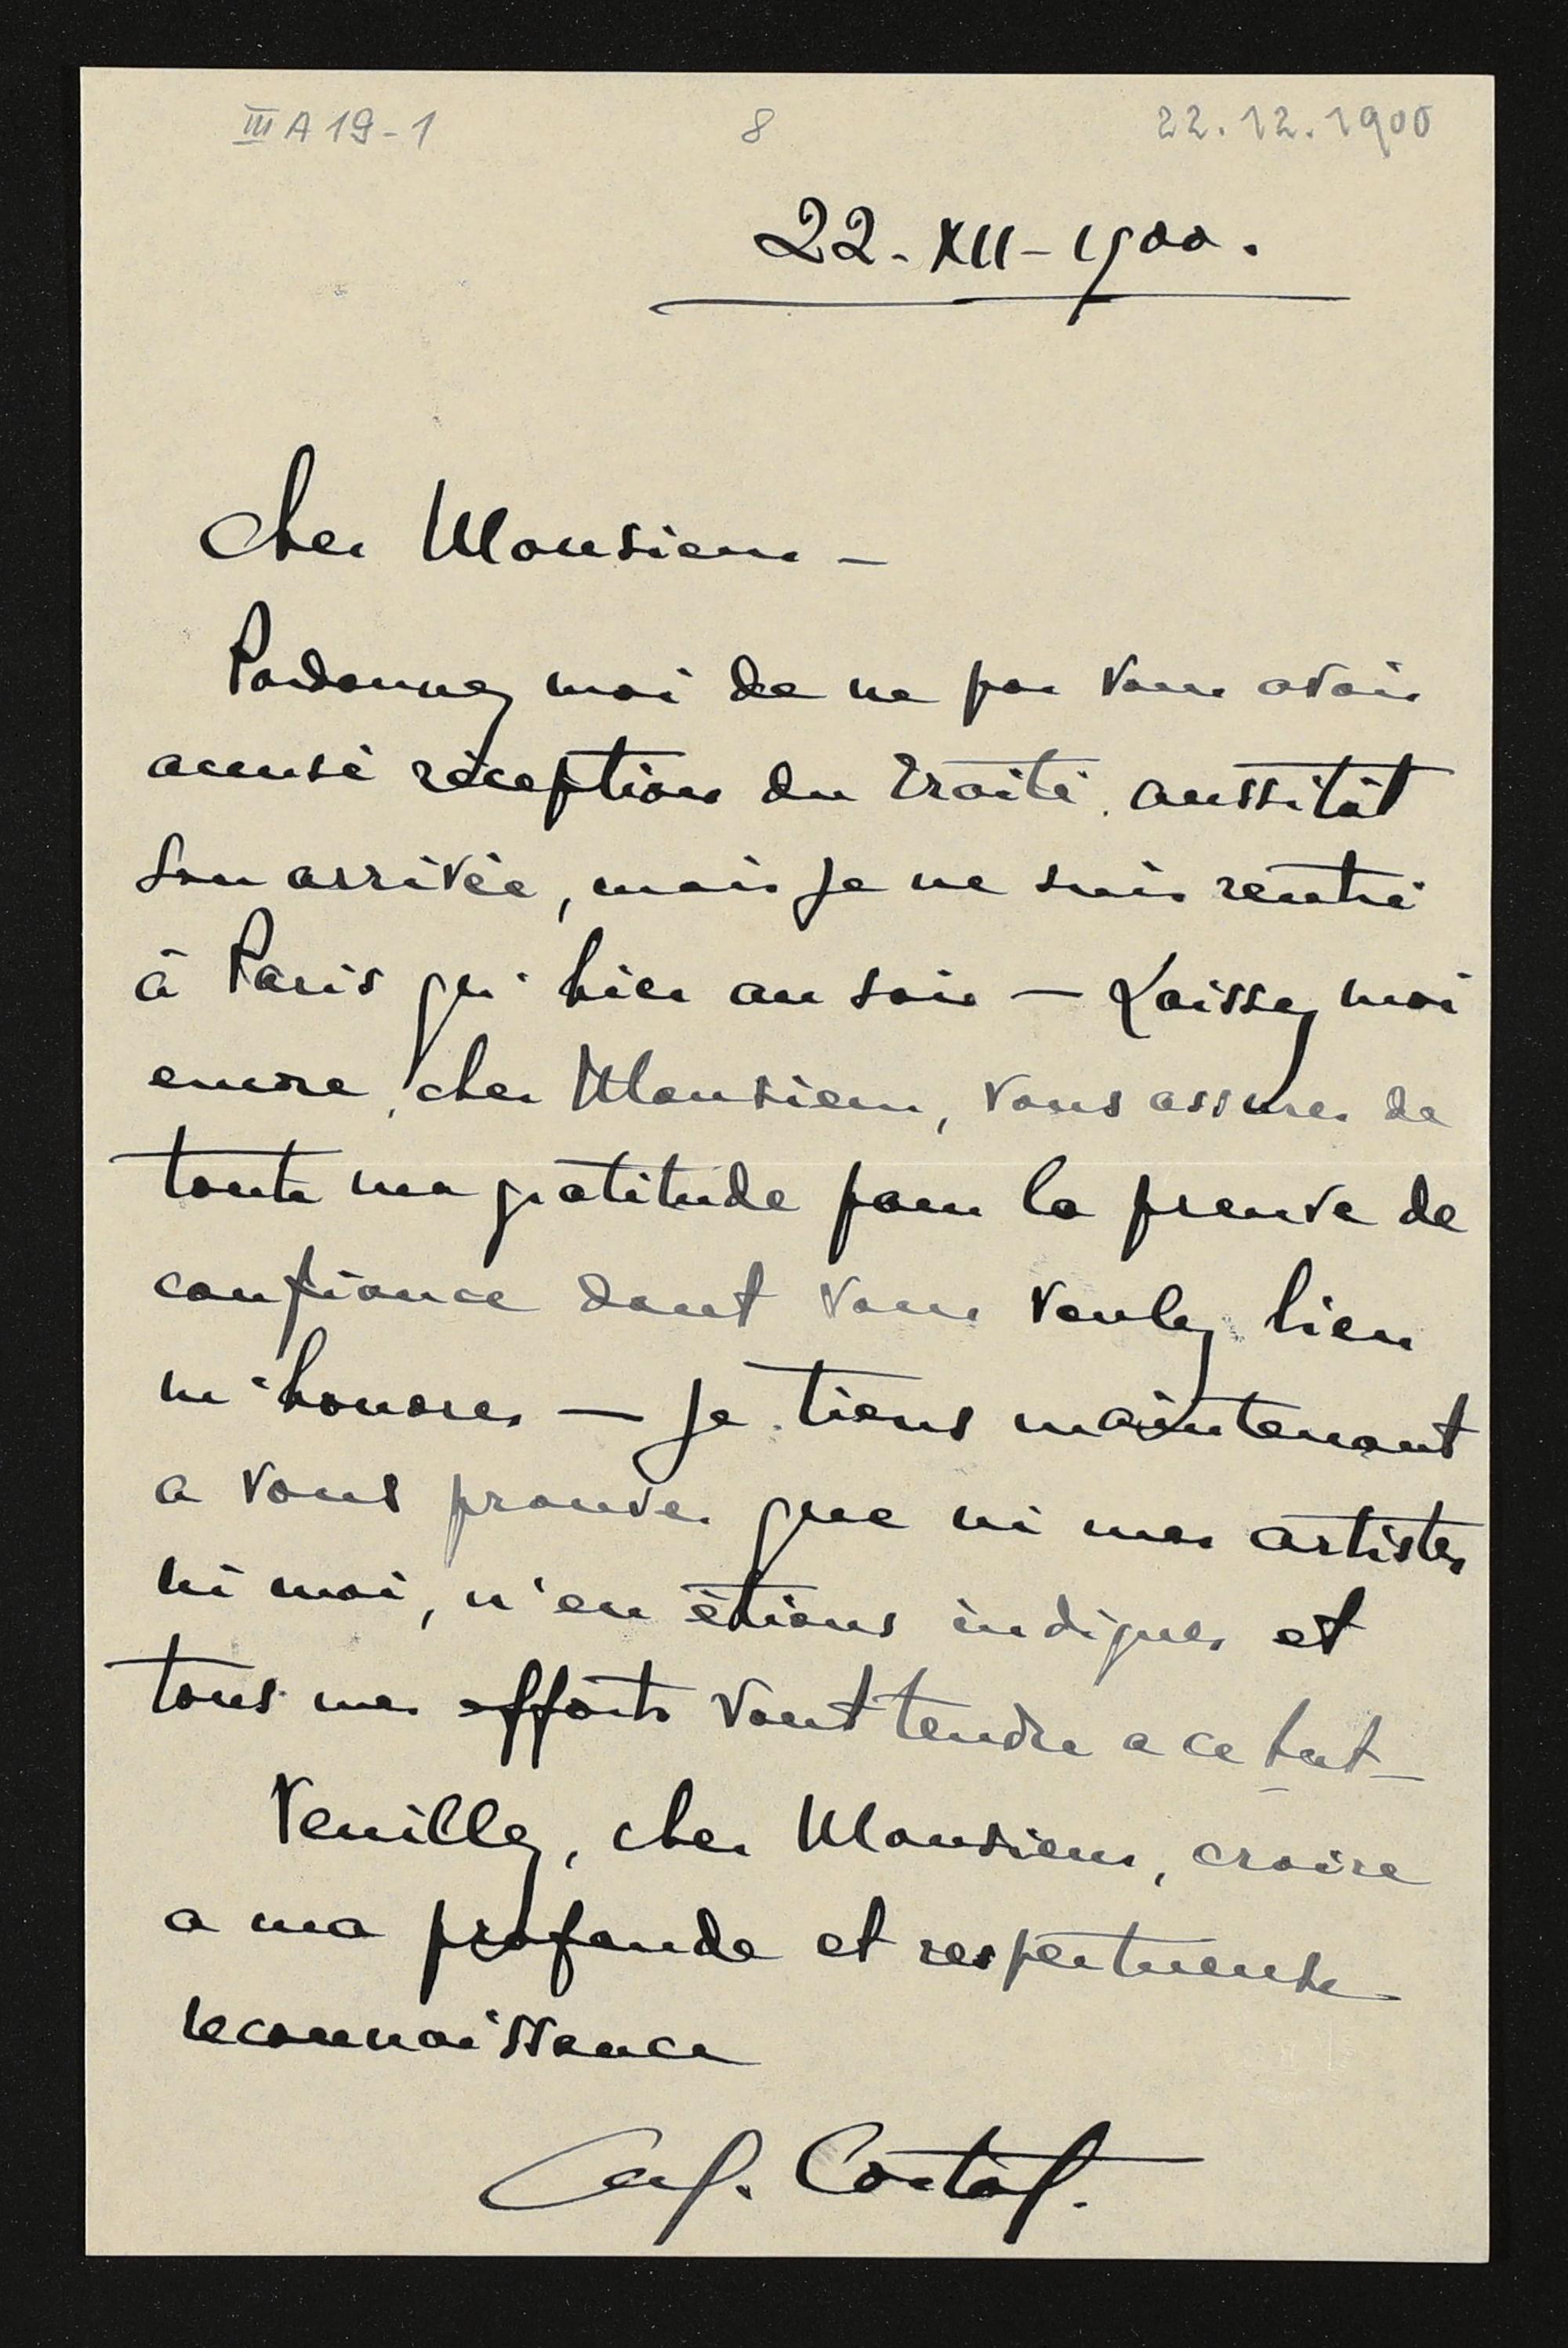 III A 19-1
8
22.12.1900
22-XII-1900.
Cher Monsieur -
Pardonnez moi de ne pas vous avoir
accusé réception du traité aussitôt
son arrivée, mais je ne suis rentré
à Paris qu'hier au soir — Laissez moi
encore, cher Monsieur, vous assurer de
toute ma gratitude pour la preuve de
confiance dont vous voulez bien
m'honorer — Je tiens maintenant
a vous prouver que ni mes artistes
ni moi, n'en étions indignes et
tous mes efforts vont tendre a ce but -
Veuillez, cher Monsieur, croire
a ma profonde et respectueuse
reconnaissance